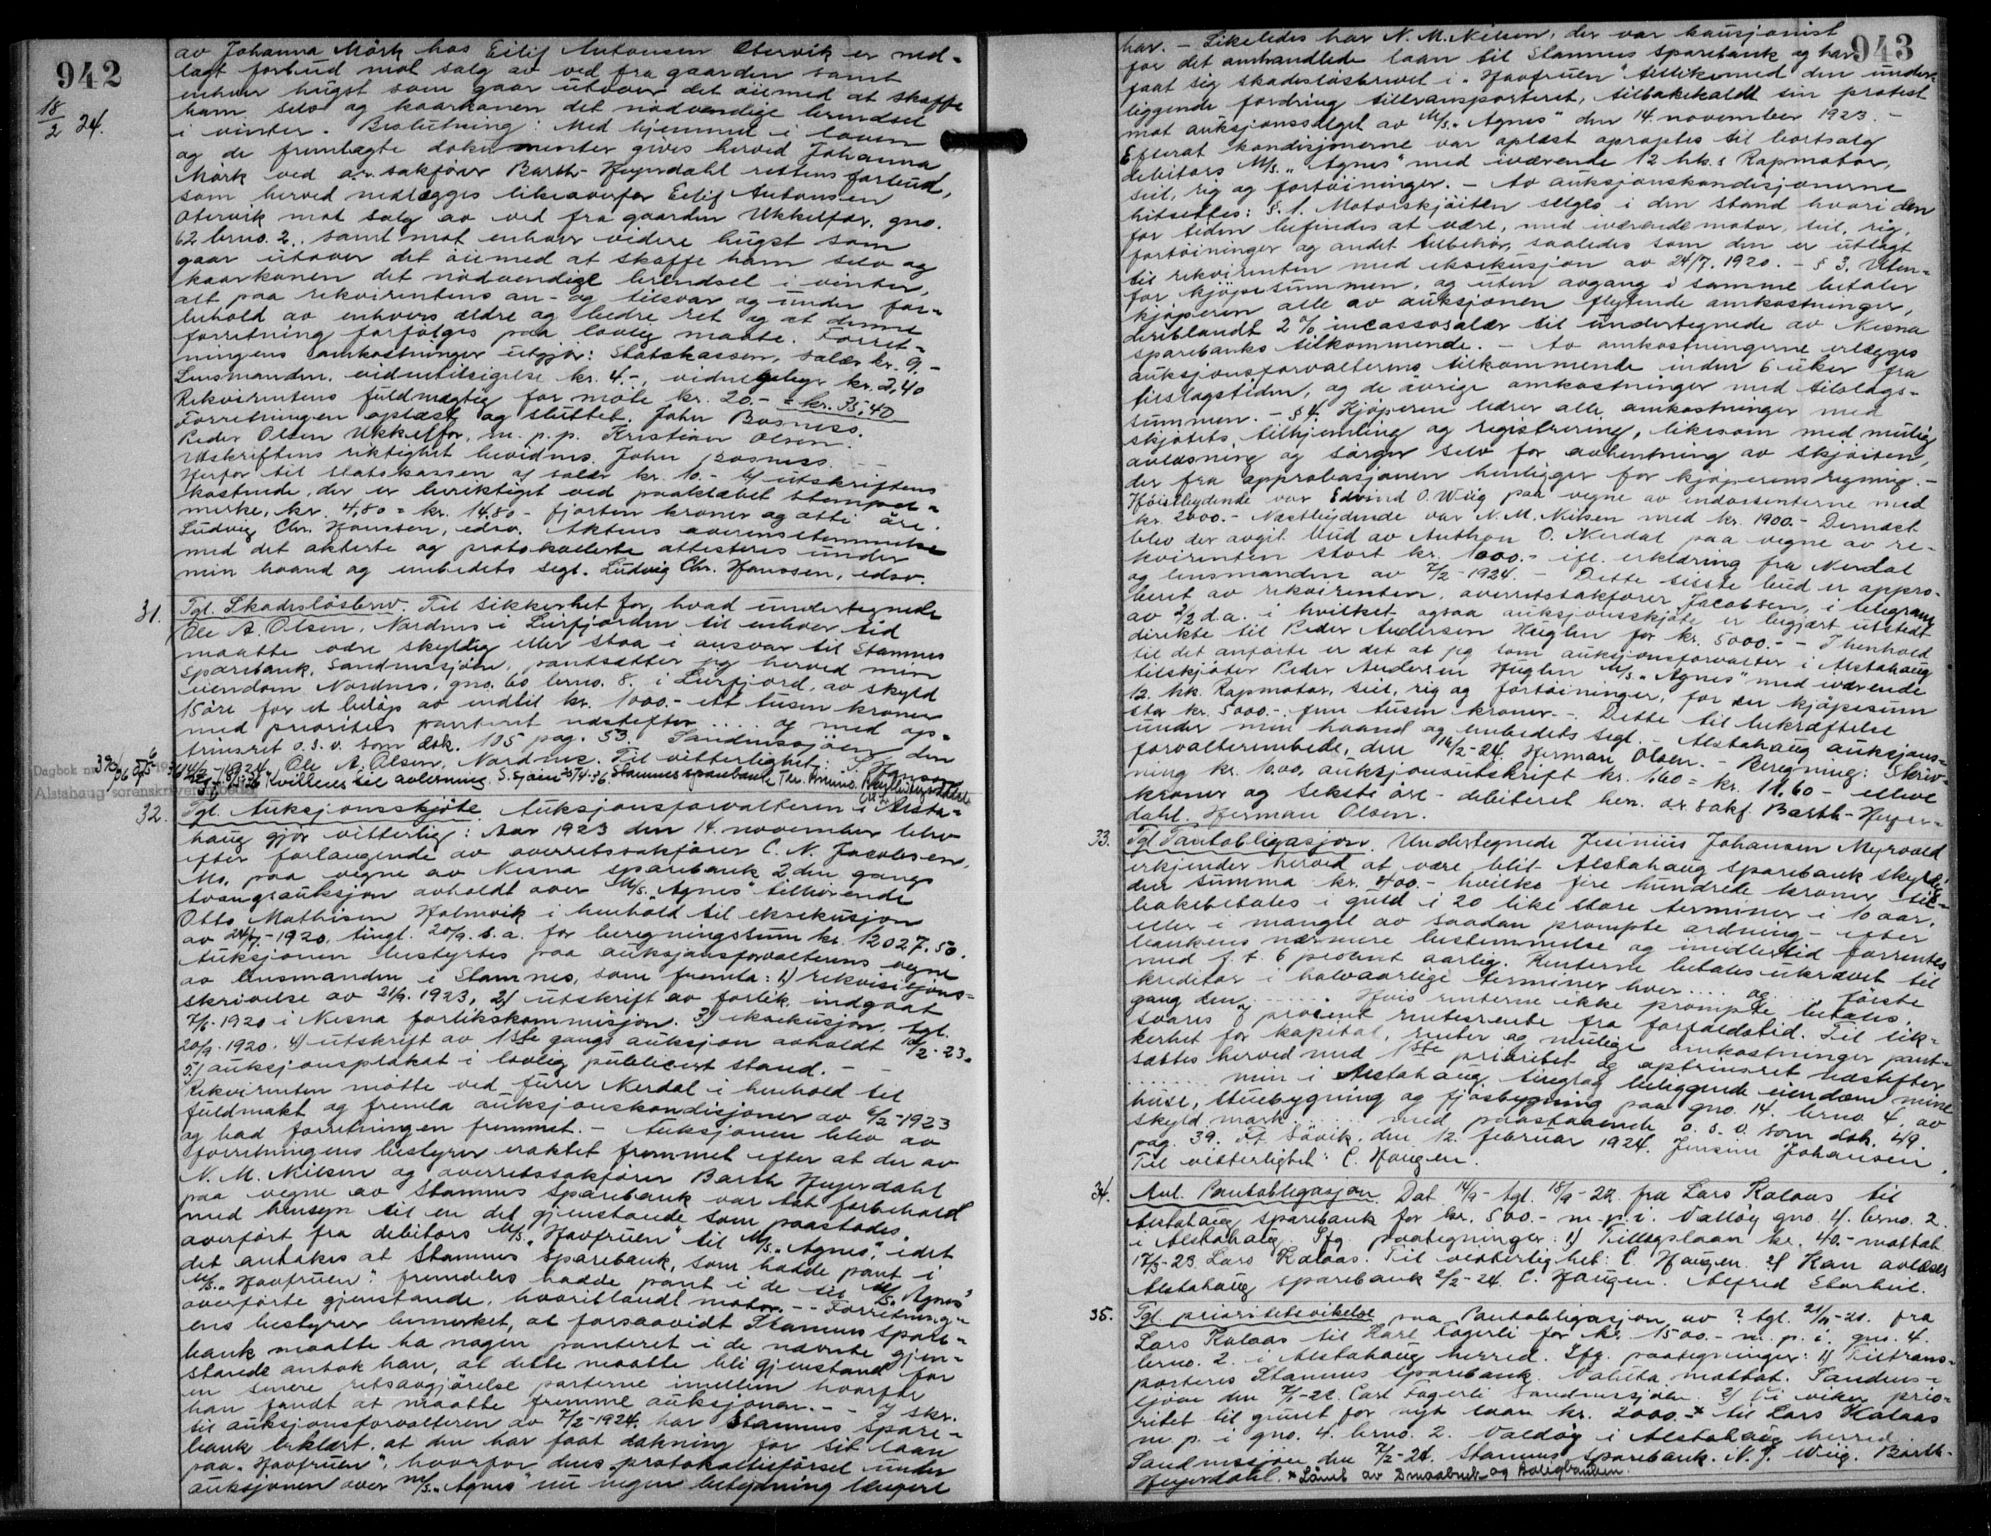 942
18/2 24.
av Johanna Mörk hos Eilif Antonsen Otervik er ned-
lagt forbud mot salg av ved fra gaarden samt
enhver hugst som gaar utover det öiemed at skaffe
ham selv og kaarkonen det nödvendige brendsel
i vinter. Beslutning: Med hjemmel i loven
og de fremlagte dokumenter gives herved Johanna
Mörk ved o.r. sakförer Barth-Heyerdahl rettens forbud,
som herved nedlegges likeoverfor Eilif Antonsen
Otervik mot salg av ved fra gaarden Ukkelfor, gno.
62 brno. 2., samt mot enhver videre hugst som
gaar utover det öiemed at skaffe ham selv og
kaarkonen det nödvendige brendsel i vinter,
alt paa rekvirentens an- og tilsvar og under for-
behold av enhvers ældre og bedre ret og at denne
forretning forfölges paa lovlig maate. Forret-
ningens omkostninger utgjör: Statskassen, salær kr. 9,-
Lensmanden, vidnetilsigelse kr. 4.-, vidnegebyr kr. 2,40
Rekvirentens fuldmægtig for möte kr. 20.- = kr. 35,40
Forretningen oplæst og sluttet. Johr Bosness.
Peder Olsen Ukkelfor, m. p. p. Kristian Olsen.
Utskriftens riktighet bevidnes. Johr Bosness.
Herfor til statskassen a/ salær kr. 10.- b/ utskriftens
kostende, der er beriktiget ved paaklæbet stempel-
merke, kr. 4,80 = kr. 14,80 - fjorten kroner og otti öre.
Ludvig Chr. Hanssen, edsv. Aktens overensstemmelse
med det akterte og protokollerte attesteres under
min haand og embedets segl. Ludvig Chr. Hanssen, edsv.
31. Tgl. Skadeslösbrev. Til sikkerhet for, hvad undertegnede
Ole A. Olsen, Nordnes i Leirfjorden til enhver tid
maatte være skyldig eller staa i ansvar til Stamnes
Sparebank, Sandnessjöen, pantsætter jeg herved min
eiendom Nordnes, gno. 60 brno. 8. i Leirfjord, av skyld
15 öre for et belöp av indtil kr. 1000.- ett tusen kroner
med prioritets panteret næstefter .... og med op-
trinsret o. s. v. som dok. 105 pag. 53. Sandnessjöen den
14/2-1924. Ole A. Olsen, Nordnes. Til vitterlighet:
Kvitteres til avlesning. S.sjöen 20/4-36. Stamnes sparebank
Dagbok nr.
Alstahaug sorenskriverembede
32. Tgl. Auksjonsskjöte. Auksjonsforvalteren i Alsta-
haug gjör vitterlig: Aar 1923 den 14. november blev
efter forlangende av overretssakförer C. N. Jacobsen,
Mo, paa vegne av Nesna sparebank 2 den gangs
tvangsauksjon avholdt over M/S. "Agnes" tilhörende
Otto Mathisen Holmvik i henhold til eksekusjon
av 24/7-1920, tingl. 20/9. s. a. for beregningssum kr. 12027.50.
Auksjonen bestyrtes paa auksjonsforvalterens vegne
av lensmanden i Stamnes, som fremla: 1) rekvisisjons-
skrivelse av 21/9. 1923, 2) utskrift av forlik indgaat
7/6. 1920 i Nesna forlikskommisjon. 3) eksekusjon, tgl.
20/9. 1920. 4) utskrift av 1ste gangs auksjon avholdt 10/2-23.
5.) auksjonsplakat i lovlig publicert stand. - -
Rekvirenten mötte ved furer Nerdal i henhold til
fuldmakt og fremla auksjonskondisjoner av 6/2-1923
og bad forretningen fremmet. - Auksjonen blev av
forretningens bestyrer eraktet fremmet efter at der av
N. M. Nilsen og overretssakförer Barth Heyerdahl
paa vegne av Stamnes Sparebank var tat forbehold
med hensyn til en del gjenstande som paastodes
overfört fra debitors M/S. "Havfruen" til M/S. "Agnes", idet
det antokes at Stamnes Sparebank, som hadde pant i
M/S. "Havfruen" fremdeles hadde pant i de til M/S. "Agnes"
overförte gjenstande, hvoriblandt motor. - - Forretning-
ens bestyrer bemerket, at forsaavidt Stamnes Spare-
bank maatte ha nogen panteret i de nævnte gjen-
stande antok han, at dette maatte bli gjenstand for
en senere retsavgjörelse parterne imellem hvorfor
han fandt at maatte fremme auksjonen. - - I skr.
til auksjonsforvalteren av 7/2-1924, har Stamnes Spare-
bank erklært, at den har faat dækning for sit laan
paa "Havfruen", hvorfor dens protokollasjon under
auksjonen over M/S. "Agnes" nu ingen betydning længere
943
har. - Likeledes har N. M. Nilsen, der var kausjonist
for det omhandlede laan til Stamnes Sparebank og har
faat sig skadeslösbrevet i "Havfruen" tillikemed den under-
liggende fordring tiltransporteret, tilbakekaldt sin protest
mot auksjonssalget av M/S. "Agnes" den 14. november 1923. -
Efterat kondisjonerne var oplæst opraptes til bortsalg
debitors M/S. "Agnes" med iværende 12 hk.s Rapmotor,
seil, rig og fortöininger. - Av auksjonskondisjonerne
hitsettes: §. 1. Motorskjöiten selges i den stand hvori den
for tiden befindes at være, med iværende motor, seil, rig,
fortöininger og andet tilbehör, saaledes som den er utlagt
til rekvirenten med eksekusjon av 24/7. 1920. - § 3. Uten-
for kjöpesummen, og uten avgang i samme betaler
kjöperen alle av auksjonen flytende omkostninger,
deriblandt 2 % incassosalær til undertegnede av Nesna
sparebanks tilkommende. - Av omkostningerne erlægges
auksjonsforvalterens tilkommende inden 6 uker fra
tilslagstiden, og de övrige omkostninger med tilslags-
summen. - § 4. Kjöperen bærer alle omkostninger med
skjötets tilhjemling og registrering, likesom med mulig
avlösning og sörger selv for avhentning av skjöiten,
der fra approbasjonen henligger for kjöperens regning. -
Höistbydende var Edvind O. Wiig paa vegne av endossenterne med
kr. 2000.- Næstbydende var N. M. Nilsen med kr. 1900.- Dernæst
blev der avgit bud av Anthon O. Nerdal paa vegne av re-
kvirenten stort kr. 1000.- ifl. erklæring fra Nerdal
og lensmanden av 7/2-1924. - Dette siste bud er appro-
beret av rekvirenten, overretssakförer Jacobsen, i telegram
av 2/2 d.a. i hvilket ogsaa auksjonsskjöte er begjært utstedt
direkte til Peder Andersen Huglen for kr. 5000.- - I henhold
til det anförte er det at jeg som auksjonsforvalter i Alstahaug
tilskjöter Peder Andersen Huglen M/S. "Agnes" med iværende
12. hk. Rapmotor, seil, rig og fortöininger, for den kjöpesum
stor kr. 5000.-. fem tusen kroner.-. Dette til bekræftelse
under min haand og embedets segl. - Alstahaug auksjons-
forvalterembede, den 16/2-24. Herman Olsen. - Beregning: Skriv-
ning kr. 10.00, auksjonsutskrift kr. 1.60 = kr. 11.60 - elleve
kroner og seksti öre - debiteret hen. o.r. sakf. Barth-Heyer-
dahl. Herman Olsen.
33. Tgl. Pantobligasjon. Undertegnede Jesinius Johansen Myrvold
erkjender herved at være blit Alstahaug sparebank skyldig
den summa kr. 400.- hvilke fire hundrede kroner til-
bakebetales i guld i 20 like store terminer i 10 aar,
eller i mangel av saadan prompte ordning - efter
bankens nærmere bestemmelse og imidlertid forrentes
med f. t. 6 procent aarlig. Renterne betales ukrævet til
kreditor i halvaarlige terminer hver .... og ... förste
gang den ....... Hvis renterne ikke prompte betales,
svares 7 procent rentesrente fra forfaldstid. Til sik-
kerhet for kapital, renter og mulige omkostninger pant-
sættes herved med 1ste prioritet og optrinsret næstefter
....... min i Alstahaug tinglag beliggende eiendom mine
huse, stuebygning og fjösbygning paa gno. 14. brno. 4. av
skyld mark .... med paastaaende o. s. v. som dok. 49.
pag. 39. P.t. Sövik, den 12. februar 1924. Jensin Johansen.
Til vitterlighet: C. Haugen.
34. Avl. Pantobligasjon. Dat. 14/9- tgl. 18/9-22. fra Lars Kalaas til
Alstahaug sparebank for kr. 500.- m. p. i. Valöy gno. 4. brno. 2.
i Alstahaug. Ifg. paategninger: 1) Tillægslaan kr. 40.- mottat
17/3-23 Lars Kalaas. Til vitterlighet: C. Haugen. 2) Kan avlæses
Alstahaug sparebank 2/2-24. C. Haugen. Alfred
35. Tgl. prioritetsvikelse paa Pantobligasjon av ? tgl. 21/11-21. fra
Lars Kalaas til Karl Fagerli for kr. 1500.- m. p. i. gno. 4.
brno. 2. i Alstahaug herred. Ifg. paategninger: 1) Tiltrans-
porteres Stamnes Sparebank. Valuta mottat. Sandnes-
sjöen den 7/1-22. Carl Fagerli Sandnessjöen. 2) Vi viker prio-
ritet til gunst for nyt laan kr. 2000.- x til Lars Kalaas
m. p. i gno. 4. brno. 2. Valöy i Alstahaug herred.
Sandnessjöen den 7/2-24. Stamnes Sparebank. N. J. Wiig. Barth-
Heyerdahl. x Laant av Smaabruk og Boligbanken.